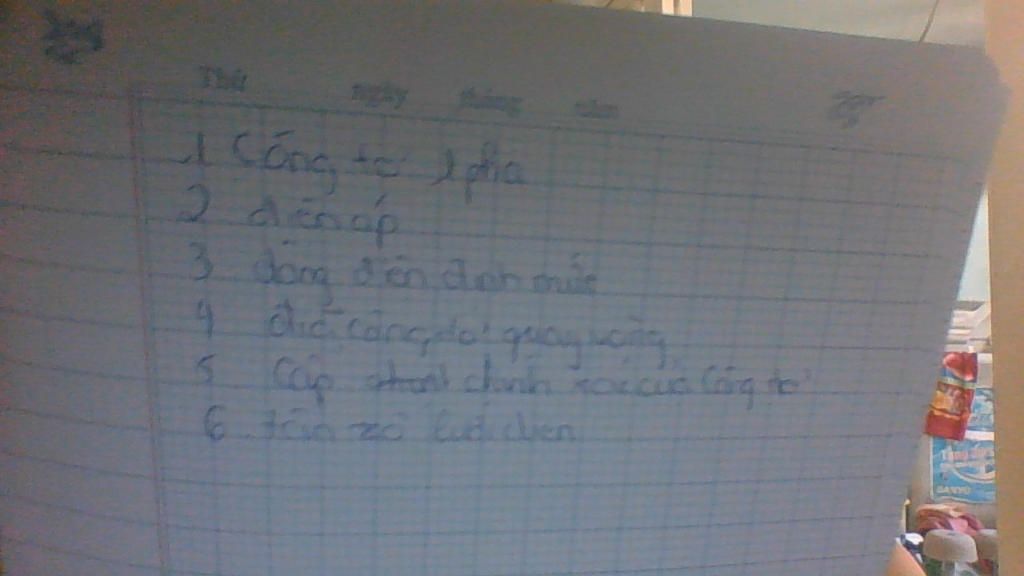 Thứ ngày tháng năm
1 Công tơ 1 pha
2 điện áp
3 dòng điện định mức
4 đĩa công tơ quay vòng
5 Cấp chính xác của công tơ
6 tần số lưới điện
SANYO